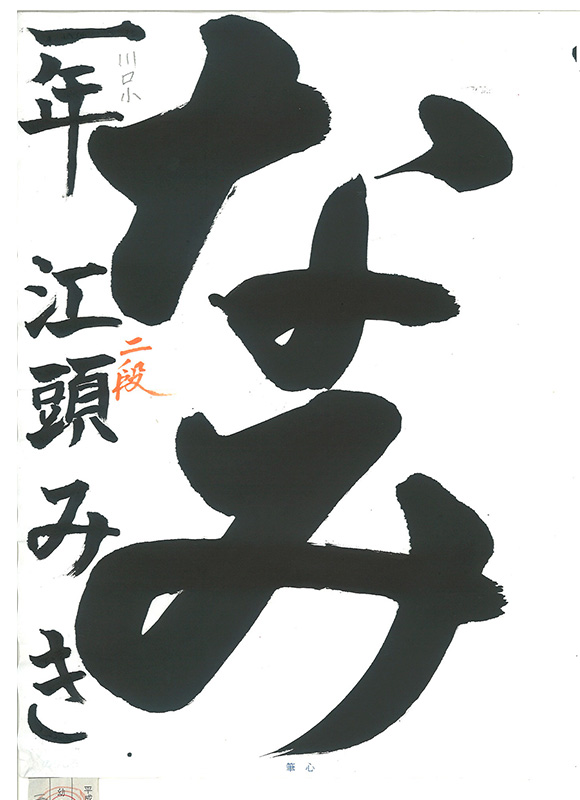 なみ
一年 江頭みき
川口小
二段
筆心
平成
幼